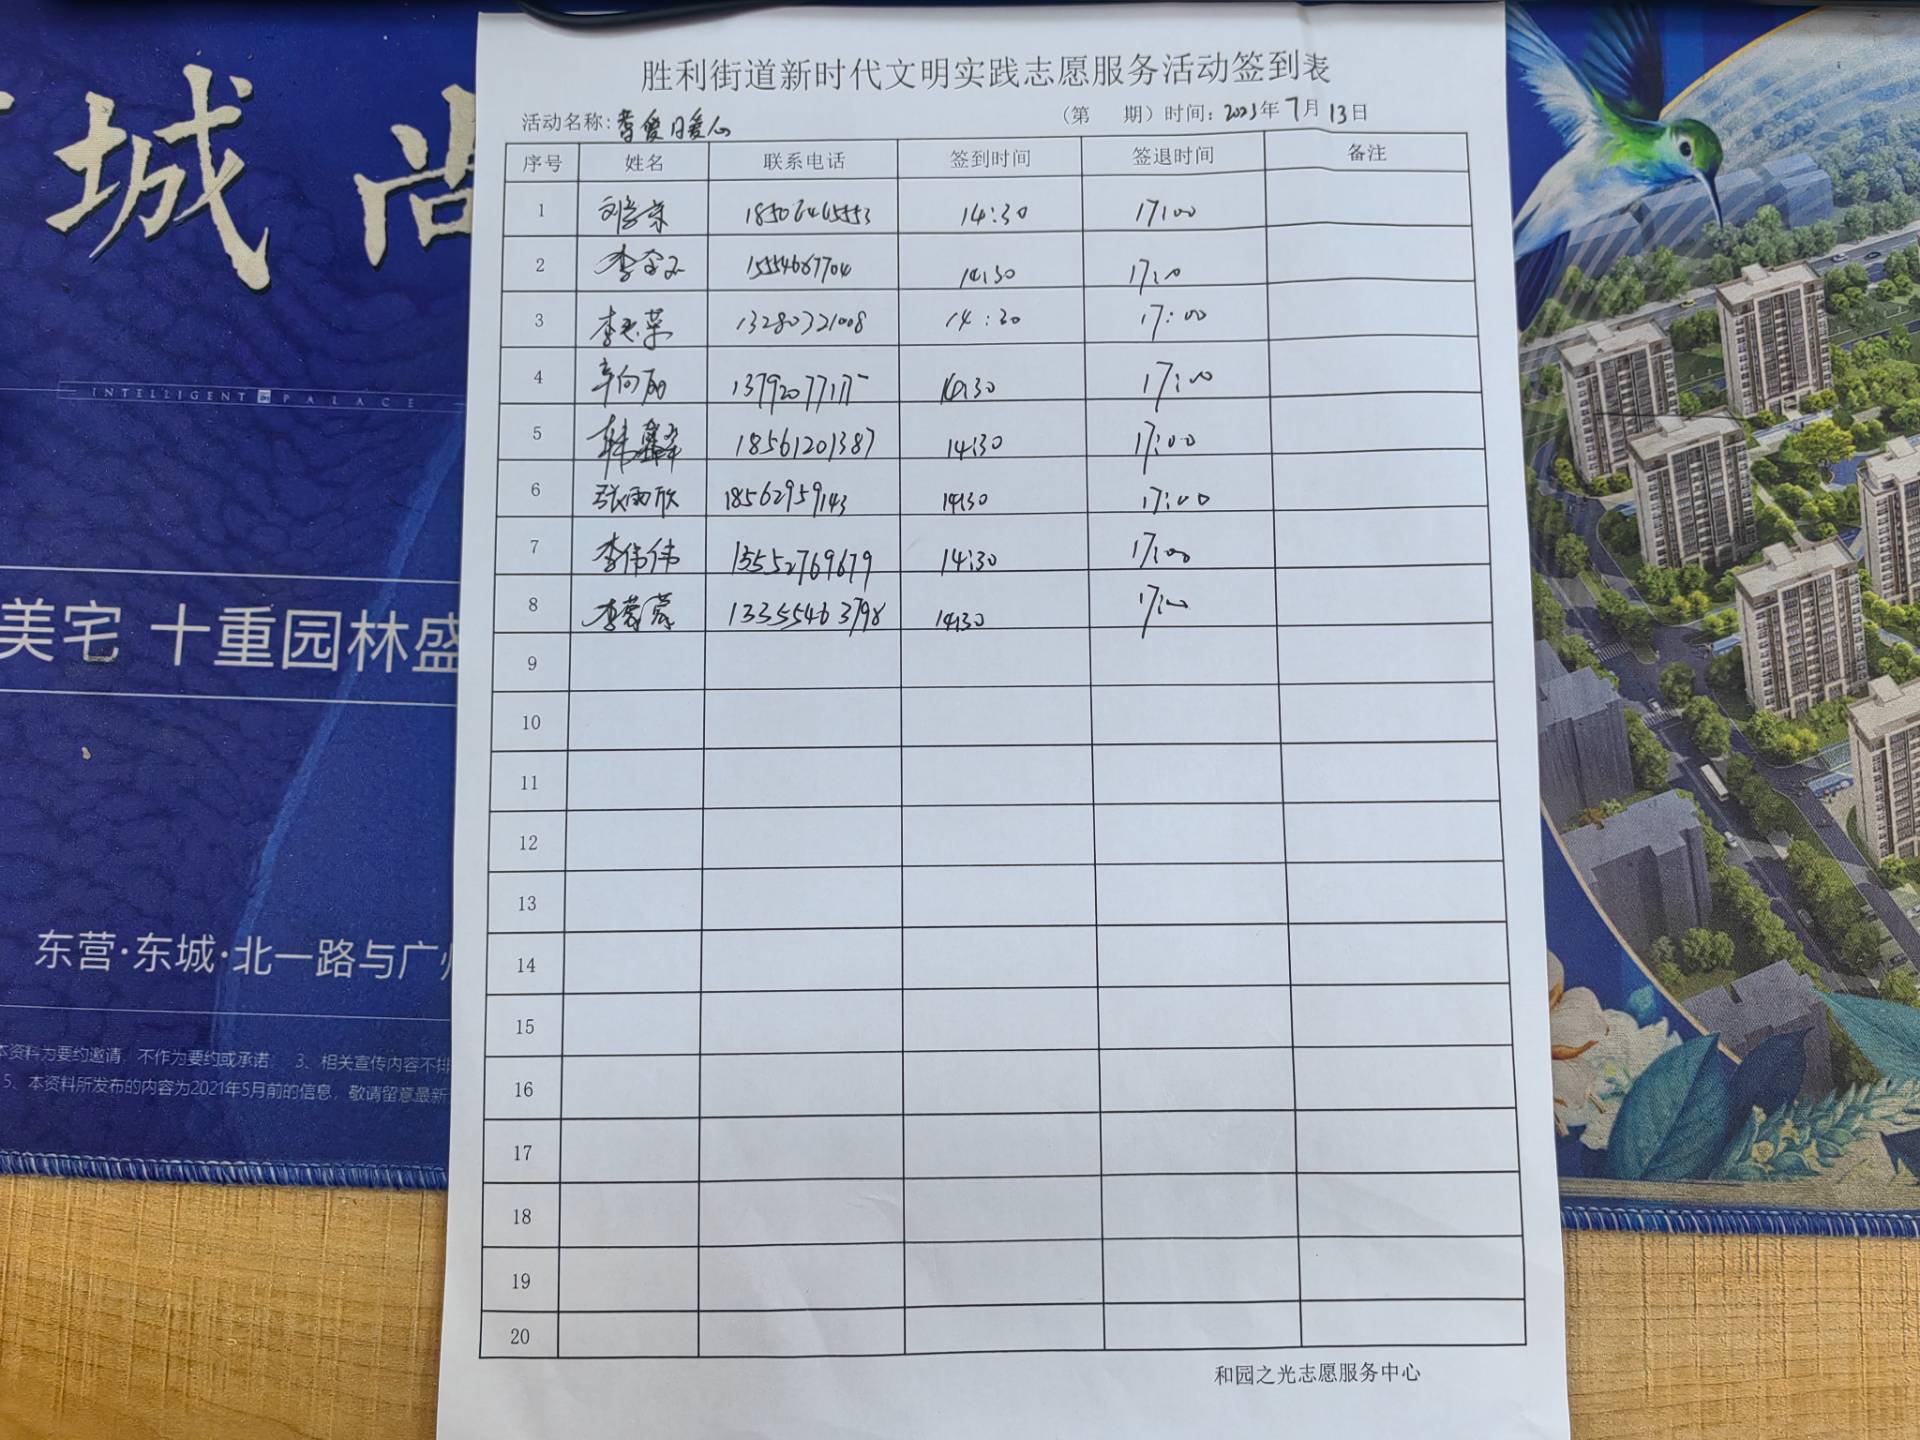 城 尚
INTELLIGENT PALACE
美宅 十重园林盛
东营·东城·北一路与广州
本资料为要约邀请,不作为要约或承诺; 3、相关宣传内容不排
5、本资料所发布的内容为2021年5月前的信息,敬请留意最新
胜利街道新时代文明实践志愿服务活动签到表
活动名称: （第 期）时间: 2023年7月13日
序号 姓名 联系电话 签到时间 签退时间 备注
1 14:30 17:00
2 李 15554667704 14:30 17:00
3 李 13280321008 14:30 17:00
4 辛向丽 13792077177 14:30 17:00
5 韩 18561201387 14:30 17:00
6 张雨欣 18562959143 14:30 17:00
7 李伟伟 15552769679 14:30 17:00
8 李蓉蓉 13355463798 14:30 17:00
9
10
11
12
13
14
15
16
17
18
19
20
和园之光志愿服务中心